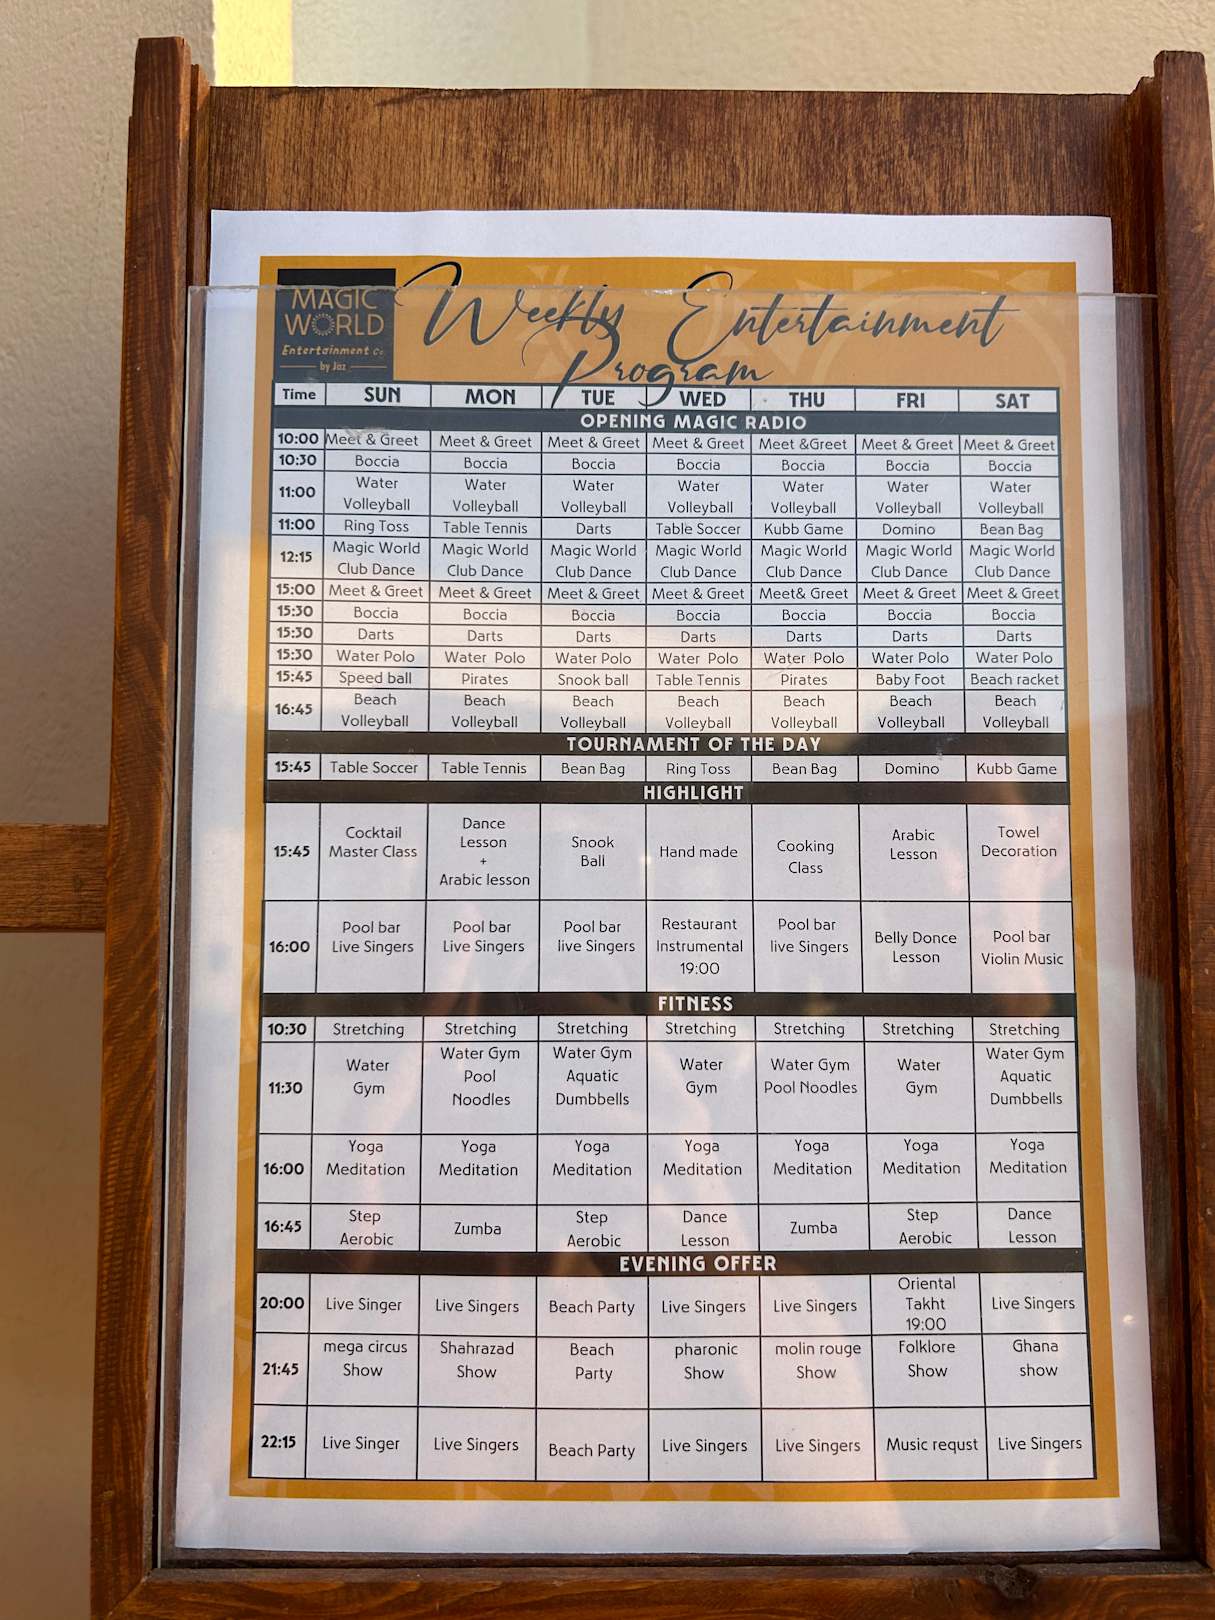 MAGIC
WORLD
Entertainment Co
by Jaz
Weekly Entertainment
Program
Time SUN MON TUE WED THU FRI SAT
OPENING MAGIC RADIO
10:00 Meet & Greet Meet & Greet Meet & Greet Meet & Greet Meet &Greet Meet & Greet Meet & Greet
10:30 Boccia Boccia Boccia Boccia Boccia Boccia Boccia
11:00 Water Volleyball Water Volleyball Water Volleyball Water Volleyball Water Volleyball Water Volleyball Water Volleyball
11:00 Ring Toss Table Tennis Darts Table Soccer Kubb Game Domino Bean Bag
12:15 Magic World Club Dance Magic World Club Dance Magic World Club Dance Magic World Club Dance Magic World Club Dance Magic World Club Dance Magic World Club Dance
15:00 Meet & Greet Meet & Greet Meet & Greet Meet & Greet Meet& Greet Meet & Greet Meet & Greet
15:30 Boccia Boccia Boccia Boccia Boccia Boccia Boccia
15:30 Darts Darts Darts Darts Darts Darts Darts
15:30 Water Polo Water Polo Water Polo Water Polo Water Polo Water Polo Water Polo
15:45 Speed ball Pirates Snook ball Table Tennis Pirates Baby Foot Beach racket
16:45 Beach Volleyball Beach Volleyball Beach Volleyball Beach Volleyball Beach Volleyball Beach Volleyball Beach Volleyball
TOURNAMENT OF THE DAY
15:45 Table Soccer Table Tennis Bean Bag Ring Toss Bean Bag Domino Kubb Game
HIGHLIGHT
15:45 Cocktail Master Class Dance Lesson + Arabic lesson Snook Ball Hand made Cooking Class Arabic Lesson Towel Decoration
16:00 Pool bar Live Singers Pool bar Live Singers Pool bar live Singers Restaurant Instrumental 19:00 Pool bar live Singers Belly Donce Lesson Pool bar Violin Music
FITNESS
10:30 Stretching Stretching Stretching Stretching Stretching Stretching Stretching
11:30 Water Gym Water Gym Pool Noodles Water Gym Aquatic Dumbbells Water Gym Water Gym Pool Noodles Water Gym Water Gym Aquatic Dumbbells
16:00 Yoga Meditation Yoga Meditation Yoga Meditation Yoga Meditation Yoga Meditation Yoga Meditation Yoga Meditation
16:45 Step Aerobic Zumba Step Aerobic Dance Lesson Zumba Step Aerobic Dance Lesson
EVENING OFFER
20:00 Live Singer Live Singers Beach Party Live Singers Live Singers Oriental Takht 19:00 Live Singers
21:45 mega circus Show Shahrazad Show Beach Party pharonic Show molin rouge Show Folklore Show Ghana show
22:15 Live Singer Live Singers Beach Party Live Singers Live Singers Music requst Live Singers